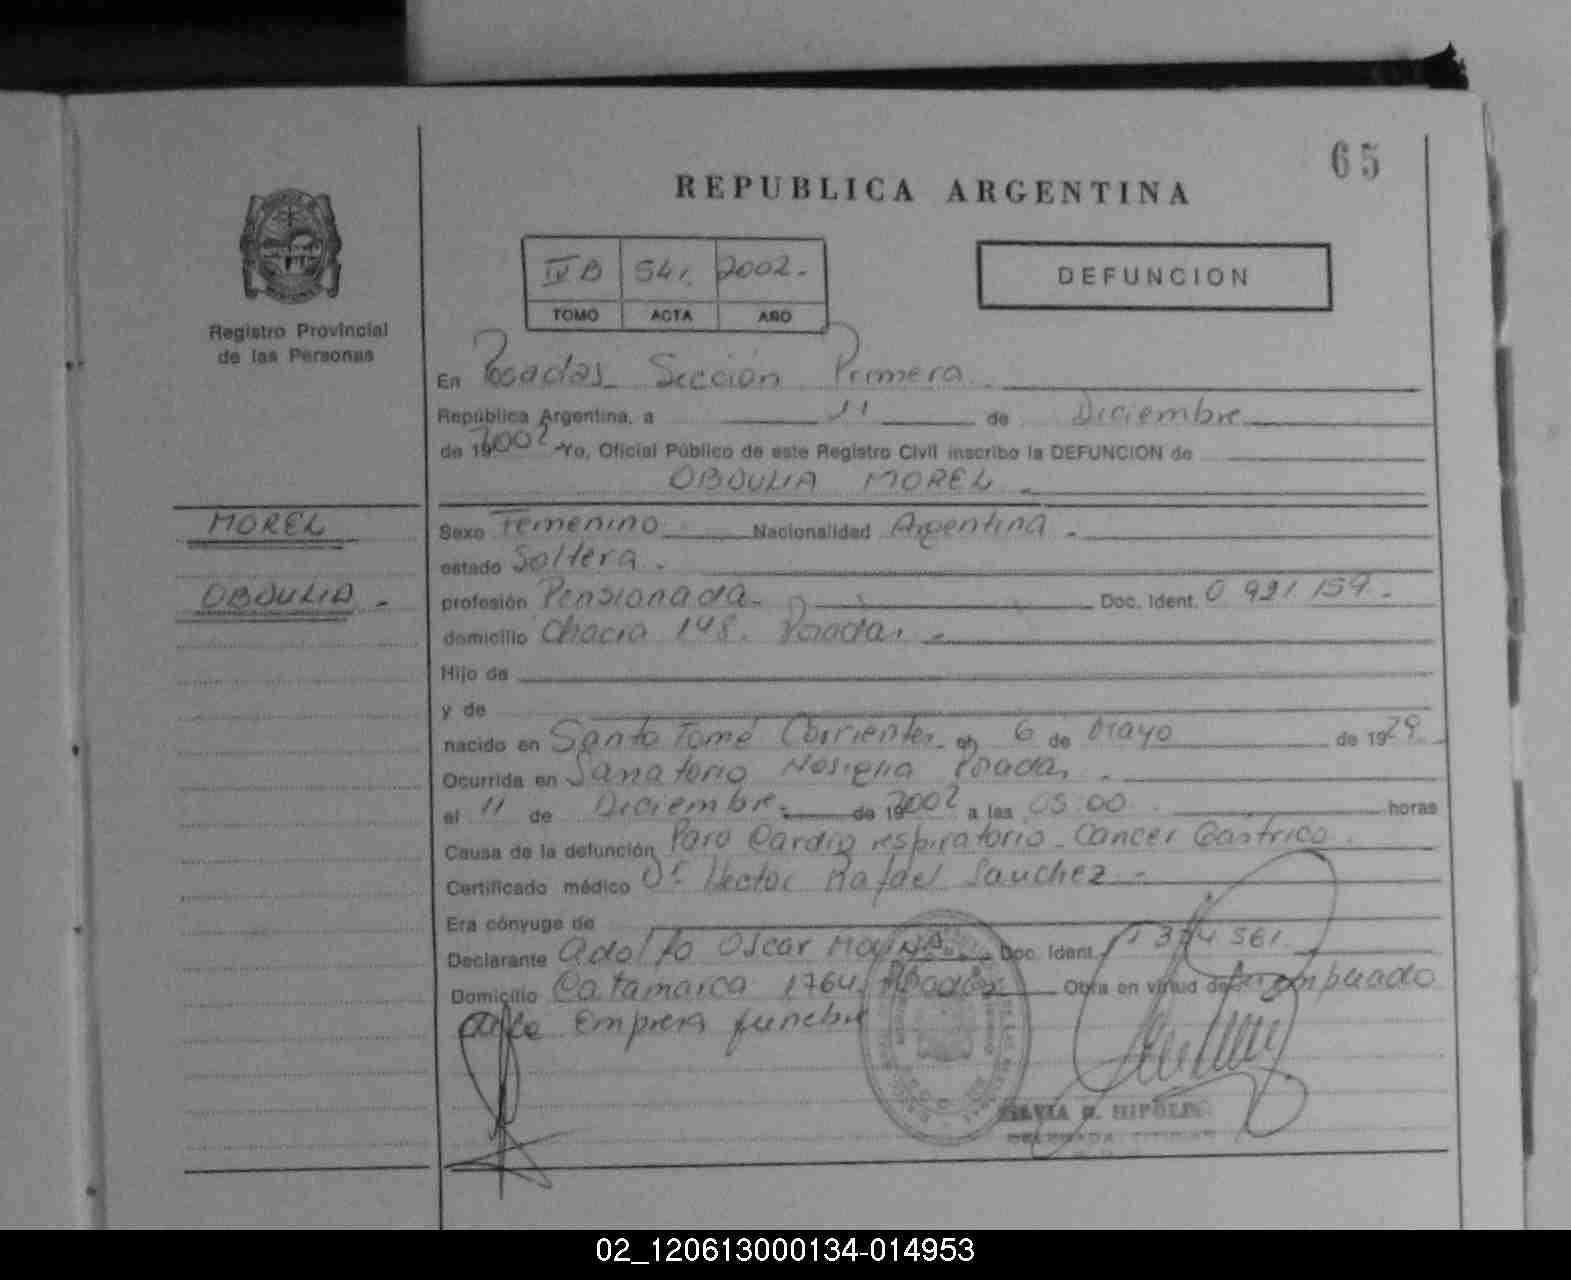 65
REPUBLICA ARGENTINA
IV B 541. 2002.-
TOMO ACTA AÑO
DEFUNCION
Registro Provincial
de las Personas
En Posadas Sección Primera
República Argentina, a 11 de Diciembre
de 192002 Yo, Oficial Público de este Registro Civil inscribo la DEFUNCION de
OBDULIA MOREL -
MOREL
OBDULIA -
Sexo Femenino Nacionalidad Argentina -
estado Soltera.
profesión Pensionada- Doc. Ident. 0 921 159.-
domicilio Chacra 148. Posadas -
Hijo de
y de
nacido en Santo Tomé Corrientes en 6 de Mayo de 1929.
Ocurrida en Sanatorio Nosiglia Posadas -
el 11 de Diciembre de 192002 a las 05:00 horas
Causa de la defunción Paro Cardio respiratorio - Cancer Gastrico.
Certificado médico Dr Hector Rafael Sanchez -
Era cónyuge de
Declarante Adolfo Oscar Doc. Ident.
Domicilio Catamarca 1764 Posadas Obra en virtud de Empleado
de Empresa funebre
SILVIA HIPOLI
DELEGADA TITULAR
02_120613000134-014953